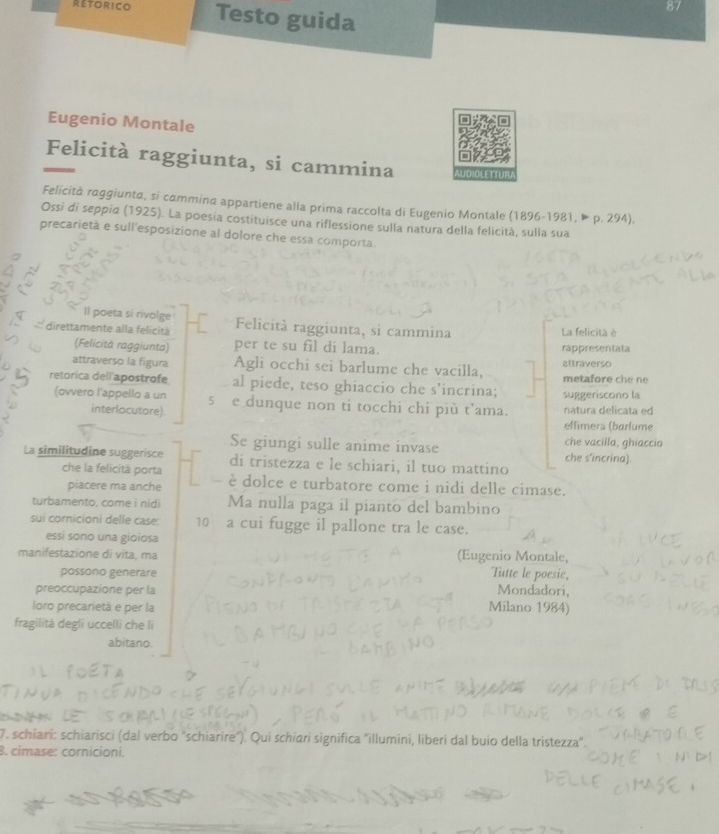 RETORICO
Testo guida
87
Eugenio Montale
Felicità raggiunta, si cammina
AUDIOLETTURA
Felicità raggiunta, si cammina appartiene alla prima raccolta di Eugenio Montale (1896-1981, ► p. 294),
Ossi di seppia (1925). La poesia costituisce una riflessione sulla natura della felicità, sulla sua
precarietà e sull'esposizione al dolore che essa comporta.
Il poeta si rivolge
direttamente alla felicità
(Felicità raggiunta)
attraverso la figura
retorica dell'apostrofe
(ovvero l'appello a un
interlocutore).
Felicità raggiunta, si cammina
per te su fil di lama.
Agli occhi sei barlume che vacilla,
al piede, teso ghiaccio che s'incrina;
5 e dunque non ti tocchi chi più t'ama.
La felicità è
rappresentata
attraverso
metafore che ne
suggeriscono la
natura delicata ed
effimera (barlume
che vacilla, ghiaccio
che s'incrina).
La similitudine suggerisce
che la felicità porta
piacere ma anche
turbamento, come i nidi
sui cornicioni delle case:
essi sono una gioiosa
manifestazione di vita, ma
possono generare
preoccupazione per la
loro precarietà e per la
fragilità degli uccelli che li
abitano.
Se giungi sulle anime invase
di tristezza e le schiari, il tuo mattino
è dolce e turbatore come i nidi delle cimase.
Ma nulla paga il pianto del bambino
10 a cui fugge il pallone tra le case.
(Eugenio Montale,
Tutte le poesie,
Mondadori,
Milano 1984)
IL BAMBINO CHE HA PERSO
IL BAMBINO
IL POETA
DICENDO CHE SE GIUNGI SULLE ANIME PIENE DI
PERÒ IL MATTINO RIMANE DOLCE E
7. schiari: schiarisci (dal verbo "schiarire"). Qui schiari significa "illumini, liberi dal buio della tristezza".
8. cimase: cornicioni.
COME I NIDI
DELLE CIMASE.